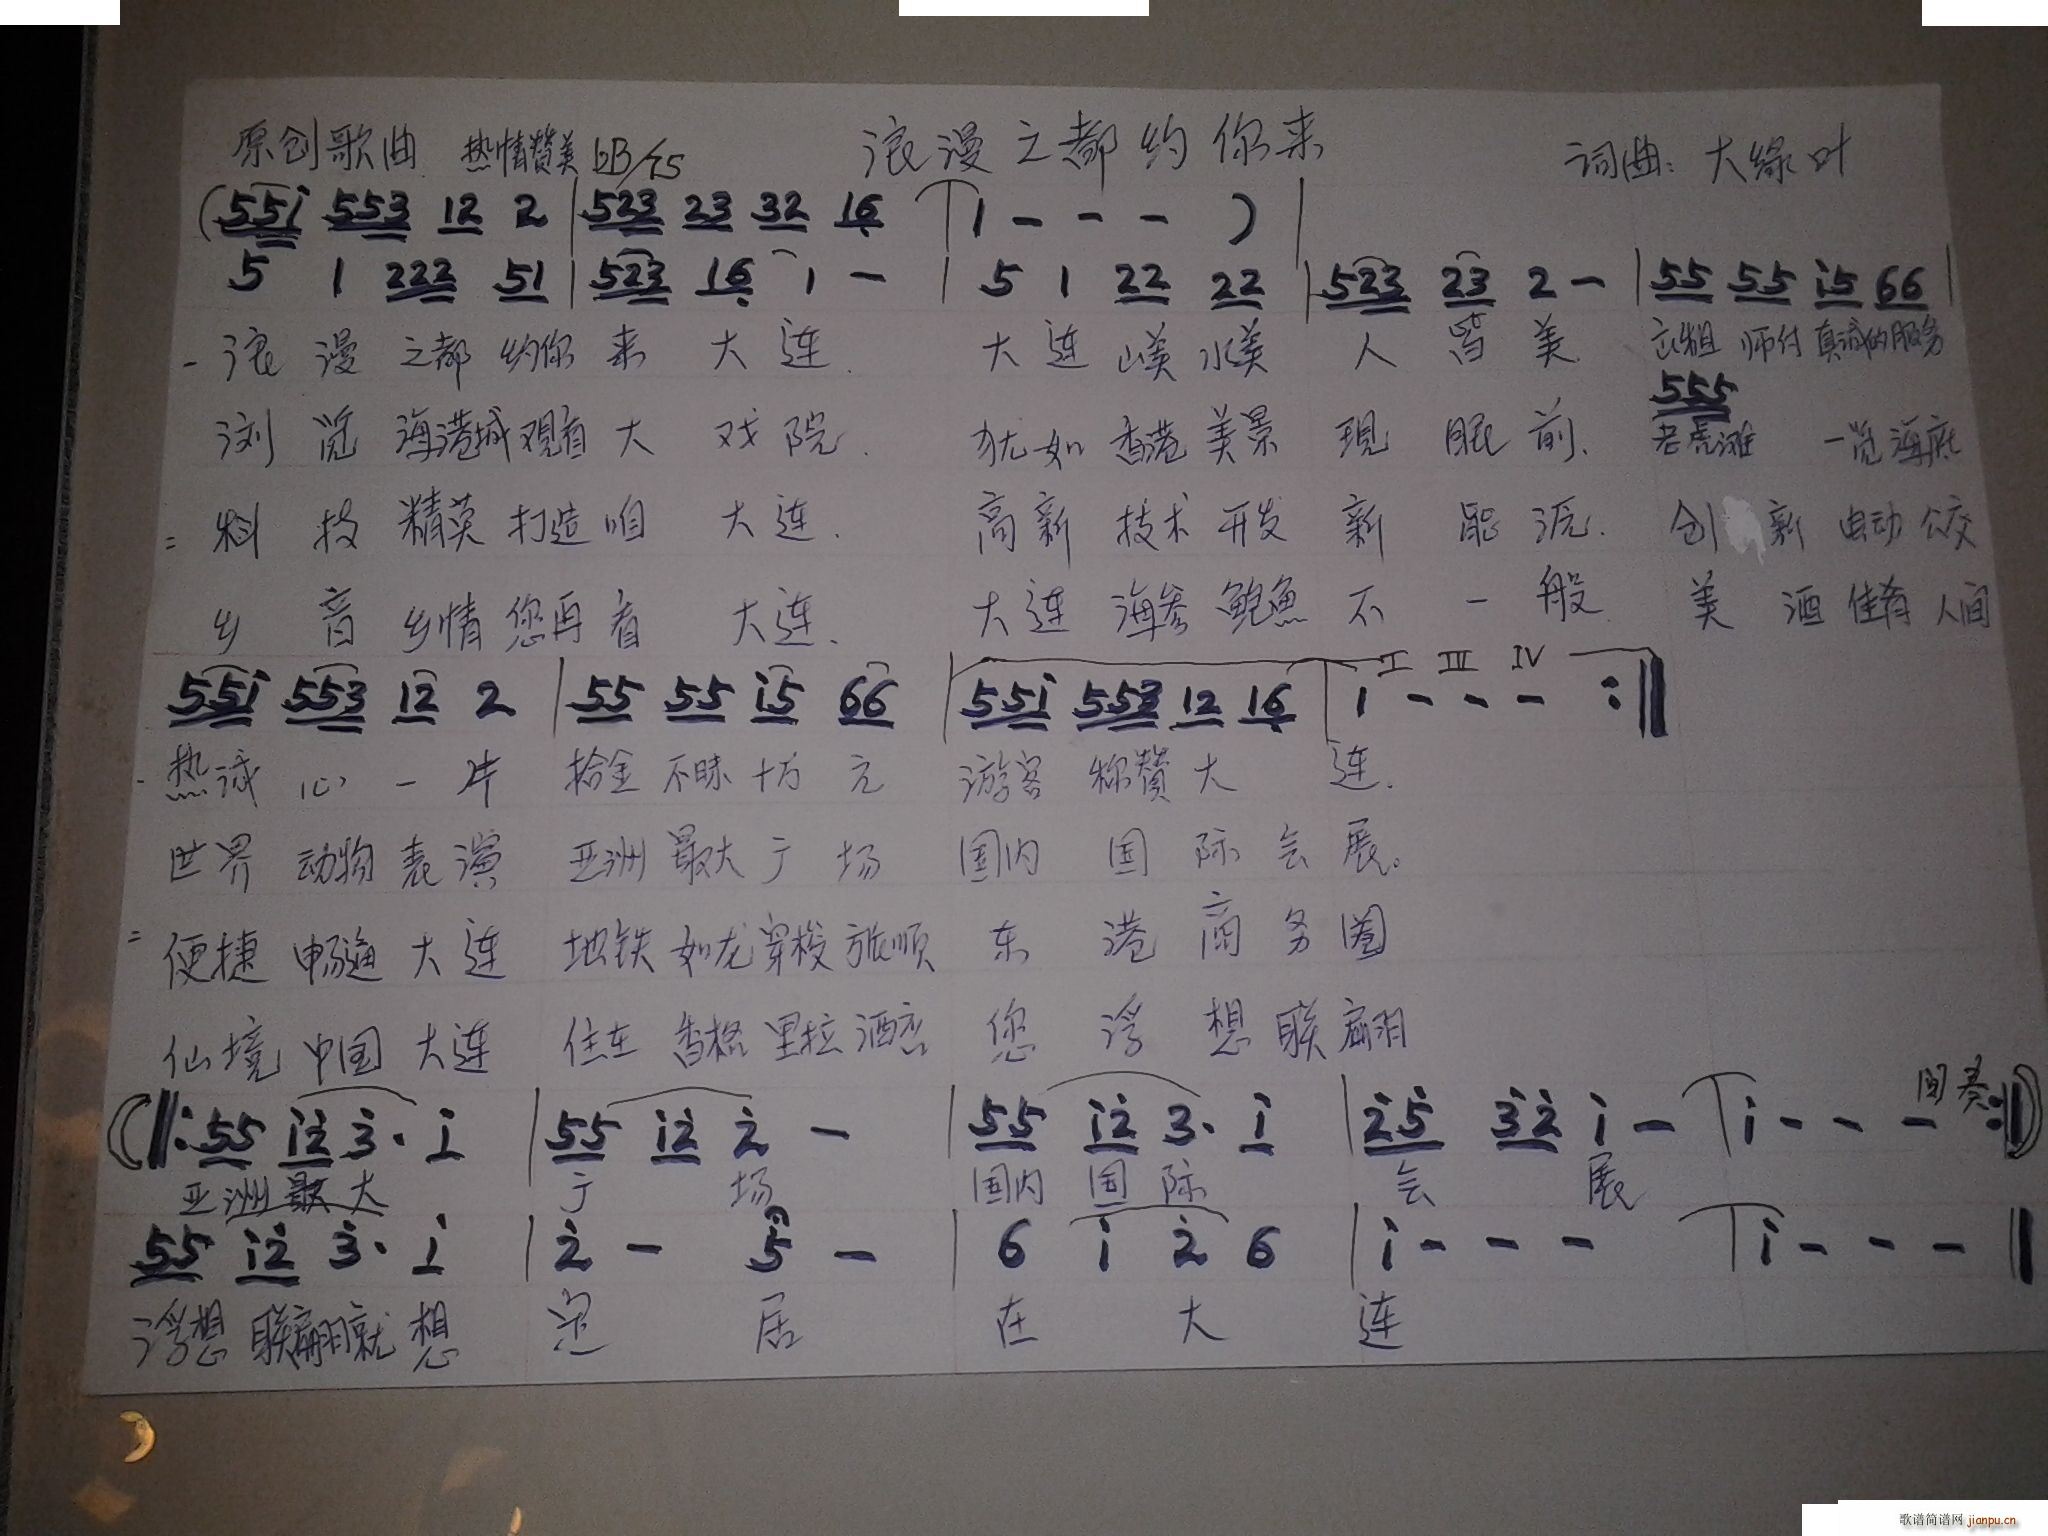 原创歌曲 热情赞美 bB/75 浪漫之都约你来 词曲: 大绿叶
(551 553 12 2 | 523 23 32 16 | 1 - - - ) |
5 1 222 51 | 523 16 1 - | 5 1 22 22 | 523 23 2 - | 55 55 i5 66 |
一 浪漫之都约你来大连. 大连山美水美人皆美. 师付真诚的服务
555
浏览海港城观看大戏院. 犹如香港美景现眼前. 老虎滩 一览海底
二 科技精英打造咱大连. 高新技术开发新能源. 创新电动公交
乡音乡情您再看大连. 大连海参鲍鱼不一般 美酒佳肴人间
I III IV
55i 553 12 2 | 55 55 i5 66 | 55i 553 12 16 | 1 - - - :||
一 热诚心一片 拾金不昧十万元 游客称赞大连.
世界动物表演 亚洲最大广场 国内国际会展。
二 便捷畅通大连 地铁如龙穿梭旅顺 东港商务圈
仙境中国大连 住在香格里拉酒店 您浮想联翩
(||: 55 i2 3. i | 55 i2 2 - | 55 i2 3. i | 25 32 i - | i - - - 间奏 :||)
亚洲最大广场 国内国际会展
55 i2 3. i | 2 - 5 - | 6 i 2 6 | i - - - | i - - - ||
浮想联翩就想定居在大连
歌谱简谱网 jianpu.cn